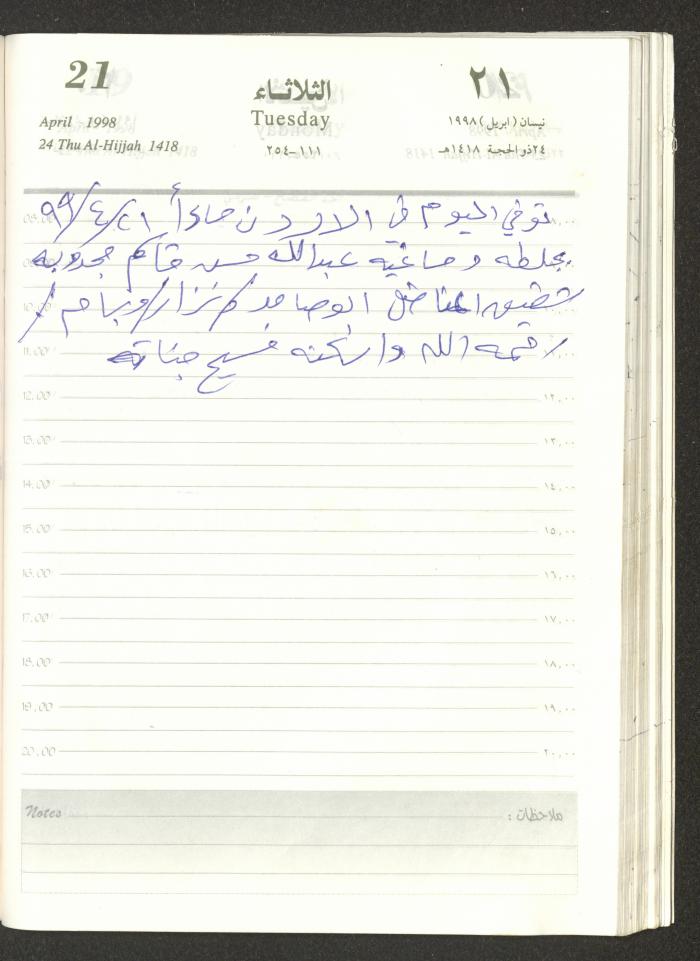 21
٢١
الثلاثاء
Tuesday
April 1998
نيسان (ابريل) ١٩٩٨
24 Thu Al-Hijjah 1418
٢٤ ذو الحجة ١٤١٨هـ
١١١-٢٥٤
توفي اليوم في الاردن مساءاً ٢١/٤/٩٩
بجلطه دماغية عبدالله حسن قاسم مجدوبه
شقيق المناضل ابو صامد / نزار / وبسام /
رحمه الله واسكنه فسيح جناته
11.00
12.00 ١٢,٠٠
13.00 ١٣,٠٠
14.00 ١٤,٠٠
15.00 ١٥,٠٠
16.00 ١٦,٠٠
17.00 ١٧,٠٠
18.00 ١٨,٠٠
19.00 ١٩,٠٠
20.00 ٢٠,٠٠
Notes
ملاحظات :